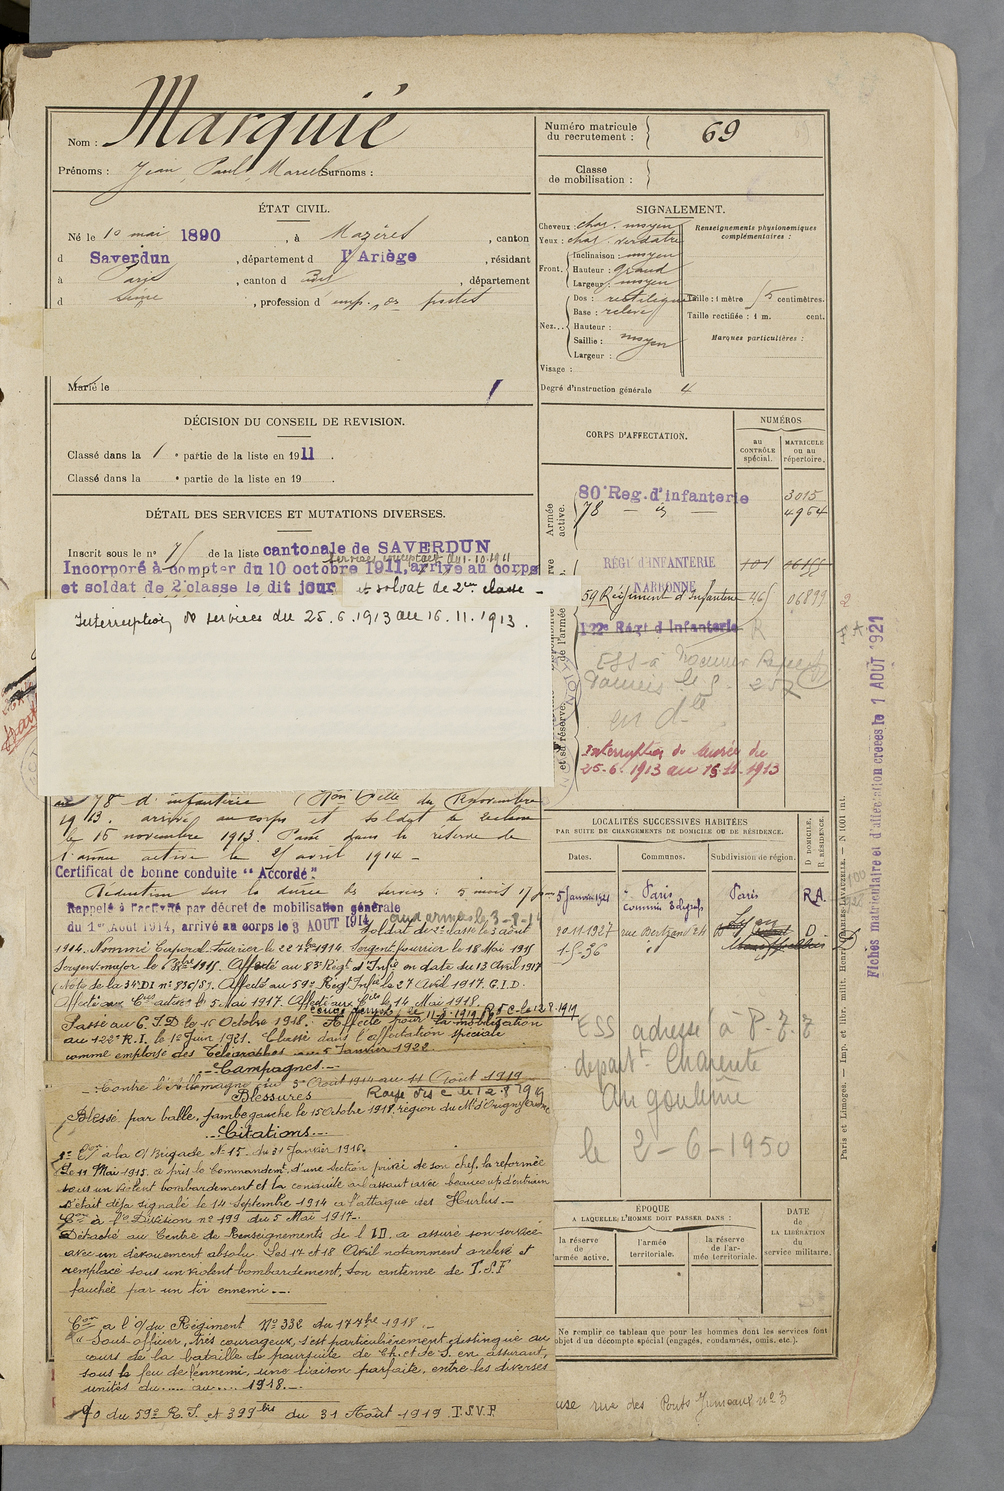 Nom : Marquié
Prénoms : Jean, Paul, Marcel Surnoms :
Numéro matricule
du recrutement : 69
Classe
de mobilisation :
ÉTAT CIVIL.
Né le 10 mai 1890, à Mazères, canton
d Saverdun, département d l'Ariège, résidant
à Paris, canton d udit, département
d Seine, profession d emp. des postes
Marié le
SIGNALEMENT.
Cheveux : chat. moyen
Yeux : chat. verdatre
Front. Inclinaison : moyen
Hauteur : grand
Largeur : moyen
Nez... Dos : rectiligne
Base : relevé
Hauteur :
Saillie : moyen
Largeur :
Visage :
Degré d'instruction générale 4
Renseignements physionomiques
complémentaires :
Taille : 1 mètre centimètres.
Taille rectifiée : 1 m. cent.
Marques particulières :
DÉCISION DU CONSEIL DE REVISION.
Classé dans la 1 e partie de la liste en 1911.
Classé dans la e partie de la liste en 19
DÉTAIL DES SERVICES ET MUTATIONS DIVERSES.
Inscrit sous le n° de la liste cantonale de SAVERDUN
Services comptant du 1-10-1911
Incorporé à compter du 10 octobre 1911, arrivé au corps
et soldat de 2e classe le dit jour et soldat de 2me classe -
Interruption de services du 25.6.1913 au 16.11.1913.
78e d'infanterie
1913. arrivé au corps et soldat de 2e classe
le 16 novembre 1913. Passé dans la réserve de
l'armée active le 25 avril 1914 -
Certificat de bonne conduite "Accordé"
Déduction sur la durée des services : 5 mois 17 jrs
Rappelé à l'activité par décret de mobilisation générale
du 1er Août 1914, arrivé au corps le 3 AOUT 1914 aux armées le 3-8-14
Soldat de 2e classe le 3 août
1914. Nommé Caporal-fourrier le 22 7bre 1914. Sergent fourrier le 18 Mai 1915
Sergent-major le 6 Xbre 1915. Affecté au 83e Régt d'Infie en date du 13 Avril 1917
(Note de la 34e DI n° 836/S1. Affecté au 59e Régt Infie le 27 Avril 1917. C.I.D.
Affecté aux Cies actives le 5 Mai 1917. Affecté aux Cies le 14 Mai 1918.
Passé au C.I.D le 16 Octobre 1918. Affecté pour la mobilisation
au 122e R.I. le 1er Juin 1921. Classé dans l'affectation spéciale
comme employé des Télégraphes au 5 Janvier 1922
Campagnes
Contre l'Allemagne du 3 Août 1914 au 11 Août 1919
Blessures Rayé des C. de 12.8.1919
Blessé par balle, jambe gauche le 15 Octobre 1918. région du Mt d'Origny Aisne
Citations
à la O/ Brigade N° 15 du 31 Janvier 1916.
Le 11 Mai 1915 a pris le Commandemt d'une Section privée de son chef, la reformée
sous un violent bombardement et la conduite à l'assaut avec beaucoup d'entrain
S'était déjà signalé le 14 Septembre 1914 à l'attaque des Hurlus.-
Con à l'O/Division n° 199 du 5 Mai 1917.-
Détaché au Centre de Renseignements de l'ID. a assuré son service
avec un dévouement absolu. Les 17 et 18 Avril notamment a relevé et
remplacé sous un violent bombardement, son antenne de T.S.F
fauchée par un tir ennemi.-
Con à l'O/du Régiment N° 332 du 17 7bre 1918.-
"Sous-officier, très courageux, s'est particulièrement distingué au
cours de la bataille de poursuite de Ch. et de S. en assurant,
sous le feu de l'ennemi, une liaison parfaite, entre les diverses
unités du..... au..... 1918.-
du 59e R.I. et 399 bis du 31 Août 1919. T.S.V.P.
CORPS D'AFFECTATION.
NUMÉROS
au
CONTRÔLE
spécial.
MATRICULE
ou au
répertoire.
Armée
active.
80e Reg. d'infanterie 3015
78 - id - 4964
RÉGt D'INFANTERIE
NARBONNE
59 Régiment d'Infanterie 46 06899
122e Régt d'Infanterie
de l'armée
et sa réserve.
Interruption de durée du
25-6-1913 au 15-11-1913
LOCALITÉS SUCCESSIVES HABITÉES
PAR SUITE DE CHANGEMENTS DE DOMICILE OU DE RÉSIDENCE.
Dates. Communes. Subdivision de région.
D DOMICILE.
R RÉSIDENCE.
5 Janvier 1921 Paris Paris R.A.
20.11.1927 rue Bertrand 24 D
1-5-36
ESS adresse à P.T.T
départt Charente
Angoulème
le 2-6-1950
ÉPOQUE
A LAQUELLE L'HOMME DOIT PASSER DANS :
la réserve
de
armée active.
l'armée
territoriale.
la réserve
de l'ar-
mée territoriale.
DATE
de
LA LIBÉRATION
du
service militaire.
Ne remplir ce tableau que pour les hommes dont les services font
objet d'un décompte spécial (engagés, condamnés, omis, etc.).
use rue des Ponts Jumeaux n° 3
Fiches matriculaire et d'affectation créées le 1 AOUT 1921
Paris et Limoges. — Imp. et libr. milit. Henri CHARLES-LAVAUZELLE. — N 1001 int.